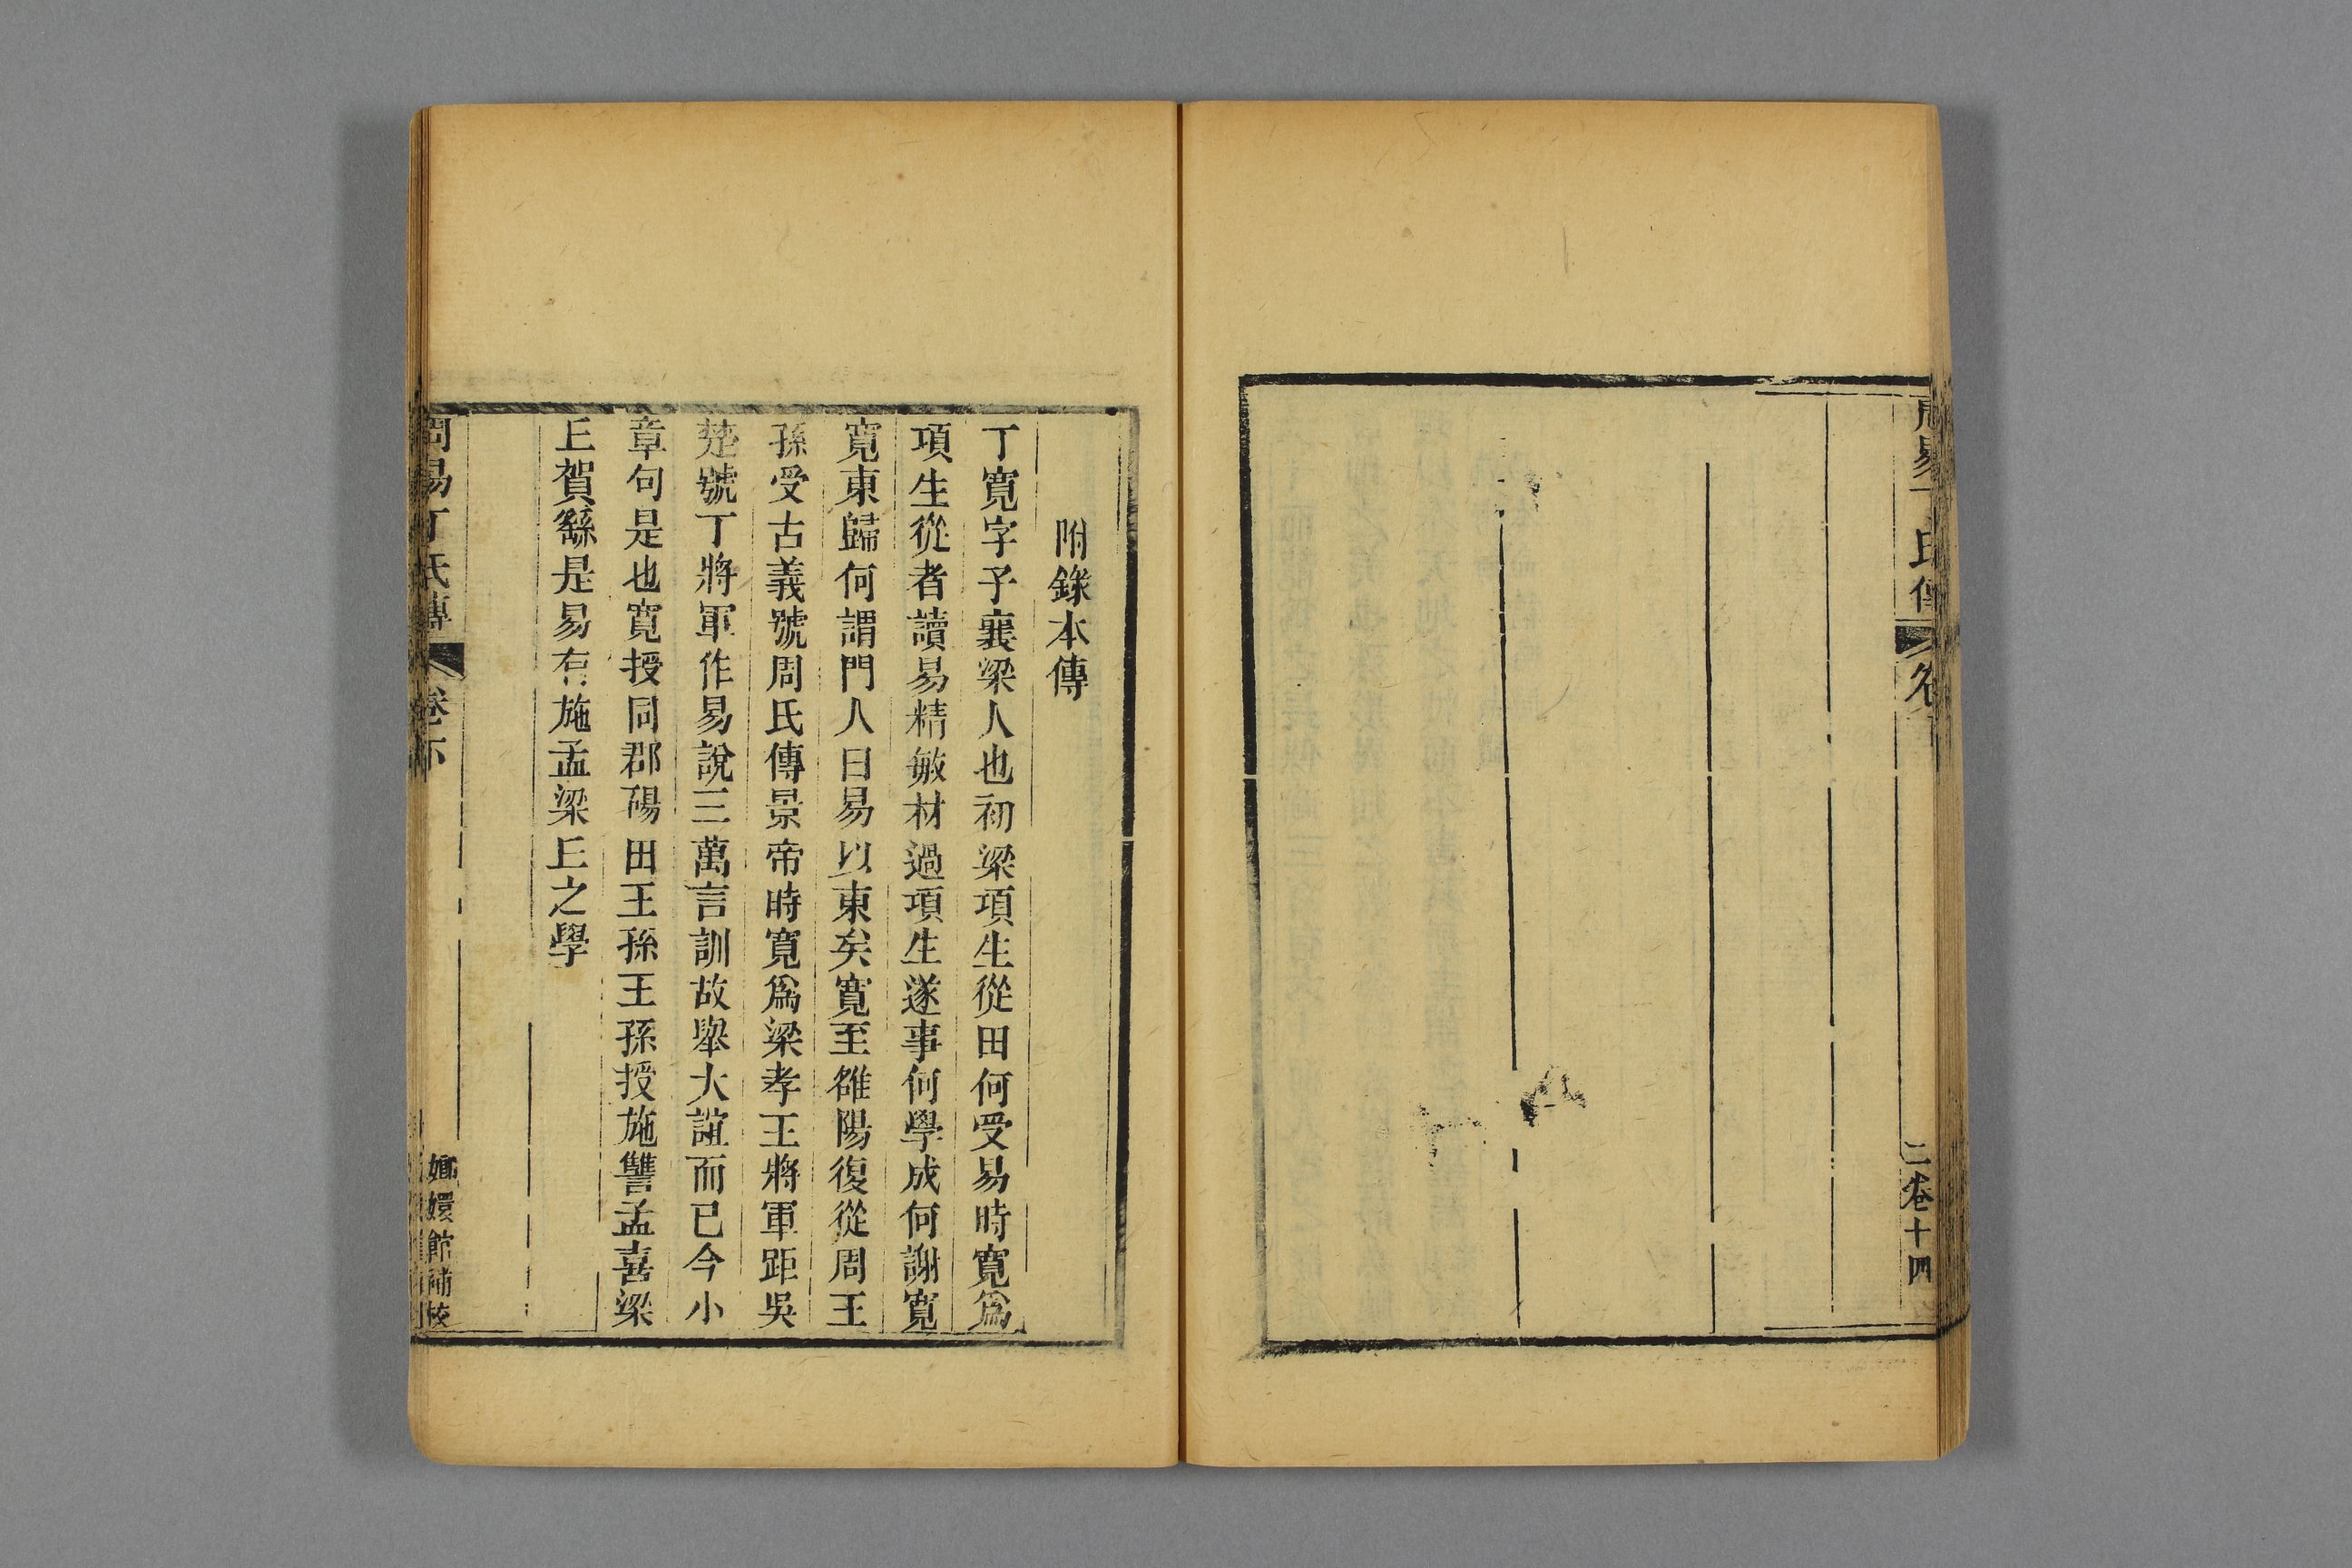 周易丁氏傳
卷下
二卷十四
附錄本傳
丁寬字子襄梁人也初梁項生從田何受易時寬爲
項生從者讀易精敏材過項生遂事何學成何謝寬
寬東歸何謂門人曰易以東矣寬至雒陽復從周王
孫受古義號周氏傳景帝時寬爲梁孝王將軍距吳
楚號丁將軍作易說三萬言訓故舉大誼而已今小
章句是也寬授同郡碭田王孫王孫授施讐孟喜梁
丘賀繇是易有施孟梁丘之學
周易丁氏傳
卷下
嫏嬛館補校